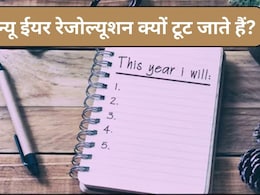 न्यू ईयर रेजोल्यूशन क्यों टूट जाते हैं?
This year i will:
1.
2.
3.
4.
5.